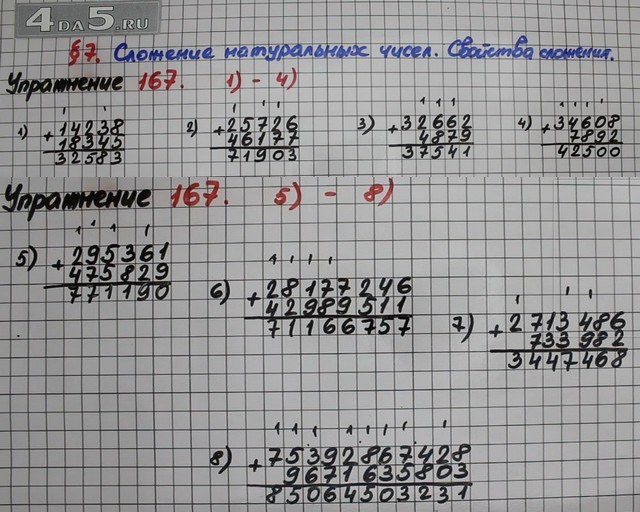 4DA5.RU
§7. Сложение натуральных чисел. Свойства сложения.
Упражнение 167. 1) - 4)
1) + 14238
18345
32583
2) + 25726
46177
71903
3) + 32662
4879
37541
4) + 34608
7892
42500
Упражнение 167. 5) - 8)
5) + 295361
475829
771190
6) + 28177246
42989511
71166757
7) + 2713486
733982
3447468
8) + 75392867428
9671635803
85064503231